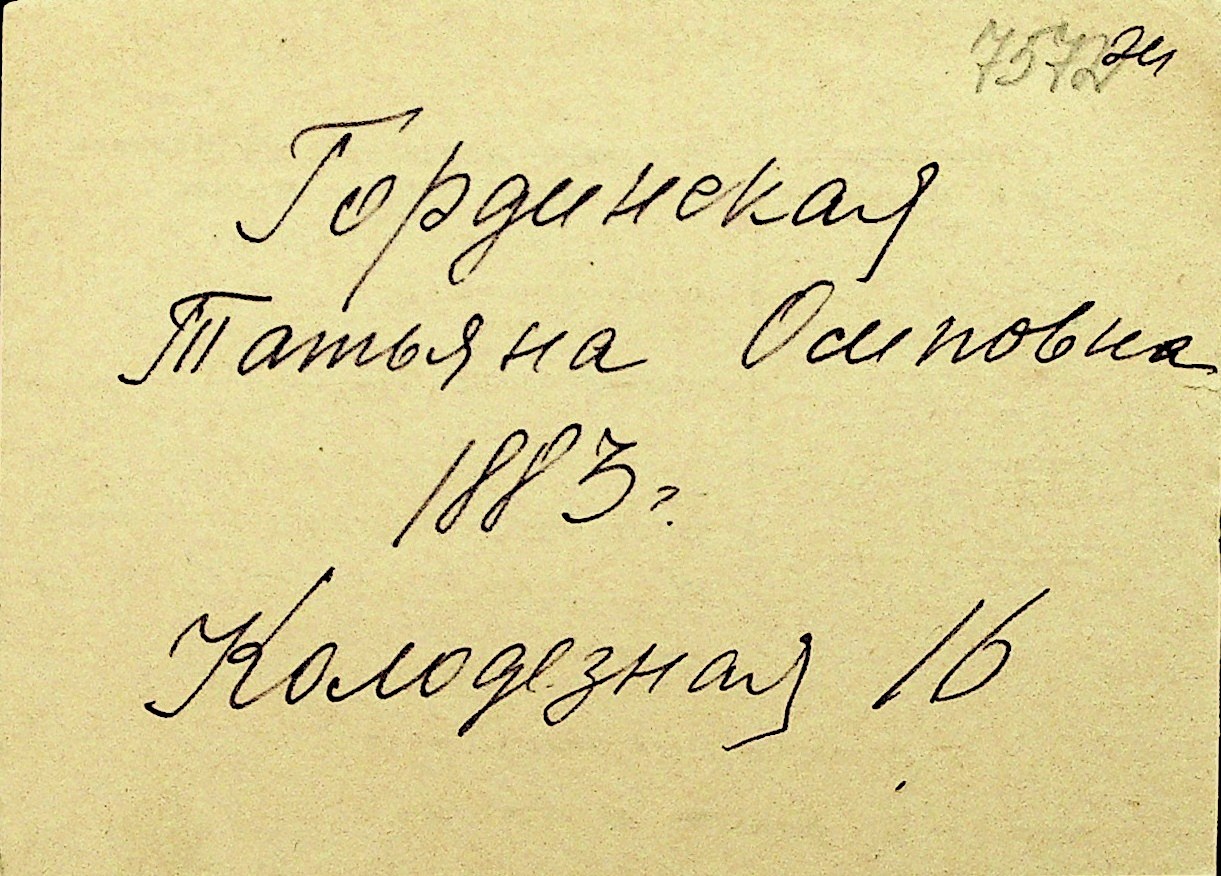 7572
Гординская
Татьяна Осиповна
1883 г.
Колодезная 16